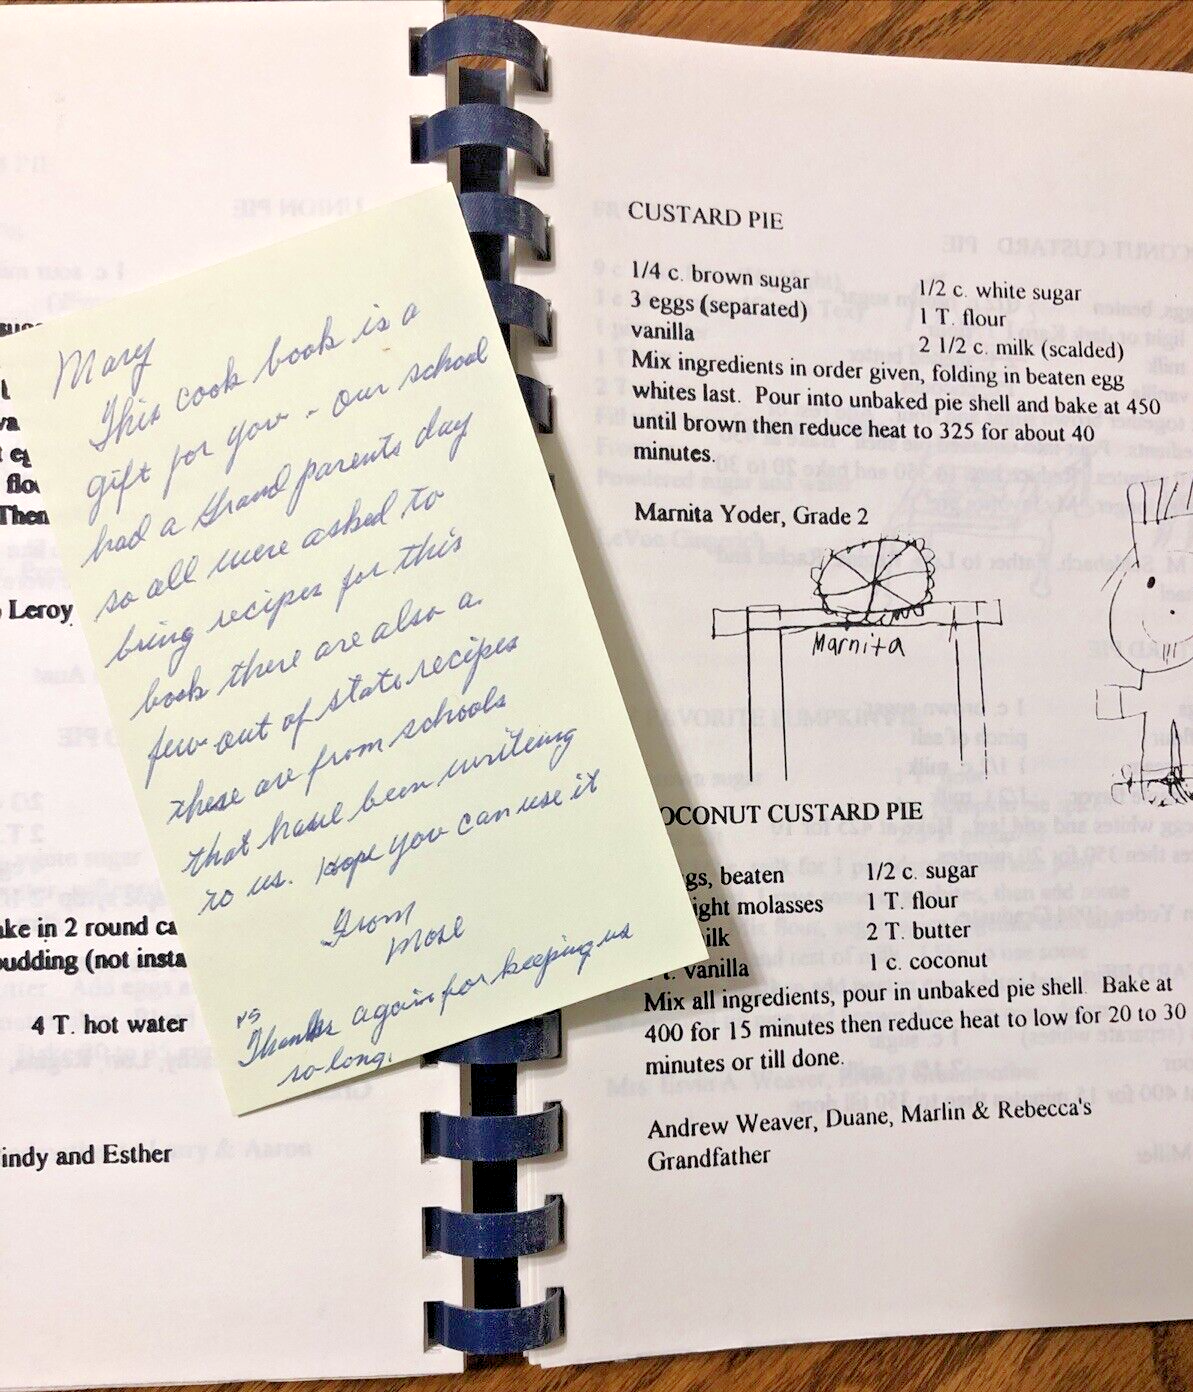 Mary
This cook book is a
gift for you - our school
had a Grand parents day
so all were asked to
bring recipes for this
book there are also a
few out of state recipes
these are from schools
that have been writeing
to us. Hope you can use it
From
Mose
PS
Thanks again for keeping us
so long.
Then
Leroy
in 2 round
(not
4 T. hot water
and Esther
CUSTARD PIE
1/4 c. brown sugar 1/2 c. white sugar
3 eggs (separated) 1 T. flour
vanilla 2 1/2 c. milk (scalded)
Mix ingredients in order given, folding in beaten egg
whites last. Pour into unbaked pie shell and bake at 450
until brown then reduce heat to 325 for about 40
minutes.
Marnita Yoder, Grade 2
Marnita
OCONUT CUSTARD PIE
gs, beaten 1/2 c. sugar
ight molasses 1 T. flour
ilk 2 T. butter
vanilla 1 c. coconut
Mix all ingredients, pour in unbaked pie shell. Bake at
400 for 15 minutes then reduce heat to low for 20 to 30
minutes or till done.
Andrew Weaver, Duane, Marlin & Rebecca's
Grandfather